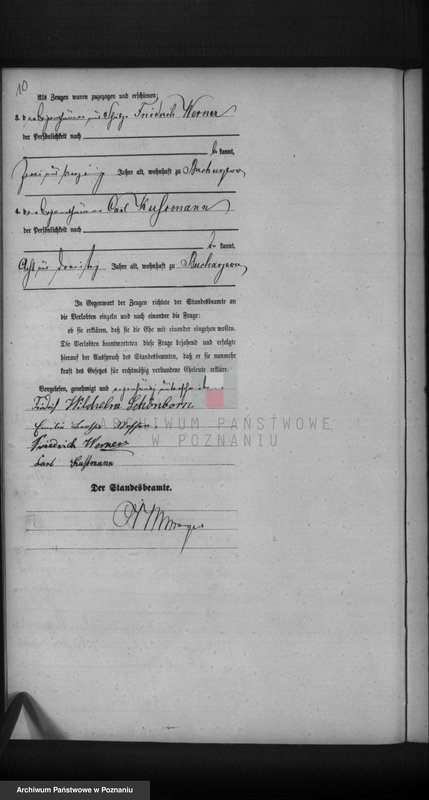 10
Als Zeugen waren zugezogen und erschienen:
3. der Eigenthümer und Friedrich Werner
der Persönlichkeit nach
be kannt,
zwei und zwanzig Jahre alt, wohnhaft zu
4. der Eigenthümer Carl Kussmann
der Persönlichkeit nach
be kannt,
acht und dreissig Jahre alt, wohnhaft zu
In Gegenwart der Zeugen richtete der Standesbeamte an
die Verlobten einzeln und nach einander die Frage:
ob sie erklären, daß sie die Ehe mit einander eingehen wollen.
Die Verlobten beantworteten diese Frage bejahend und erfolgte
hierauf der Ausspruch des Standesbeamten, daß er sie nunmehr
kraft des Gesetzes für rechtmäßig verbundene Eheleute erkläre.
Vorgelesen, genehmigt und eigenhändig unterschrieben
Wilhelm Schönborn
Emilie
ARCHIWUM PAŃSTWOWE
W POZNANIU
Friedrich Werner
Karl Kussmann
Der Standesbeamte.
Archiwum Państwowe w Poznaniu